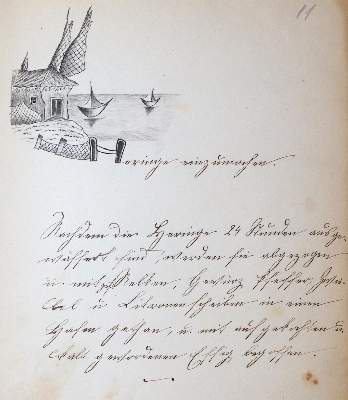 11
Heringe einzumachen.
Nachdem die Heringe 24 Stunden ausge-
wässert sind, werden sie abgezogen
u. mit Nelken, Gewürz, Pfeffer, Zwie-
bel u. Citronenscheiben in einen
Hafen gethan, u. mit aufgekochten u.
kalt gewordenen Essig begossen.